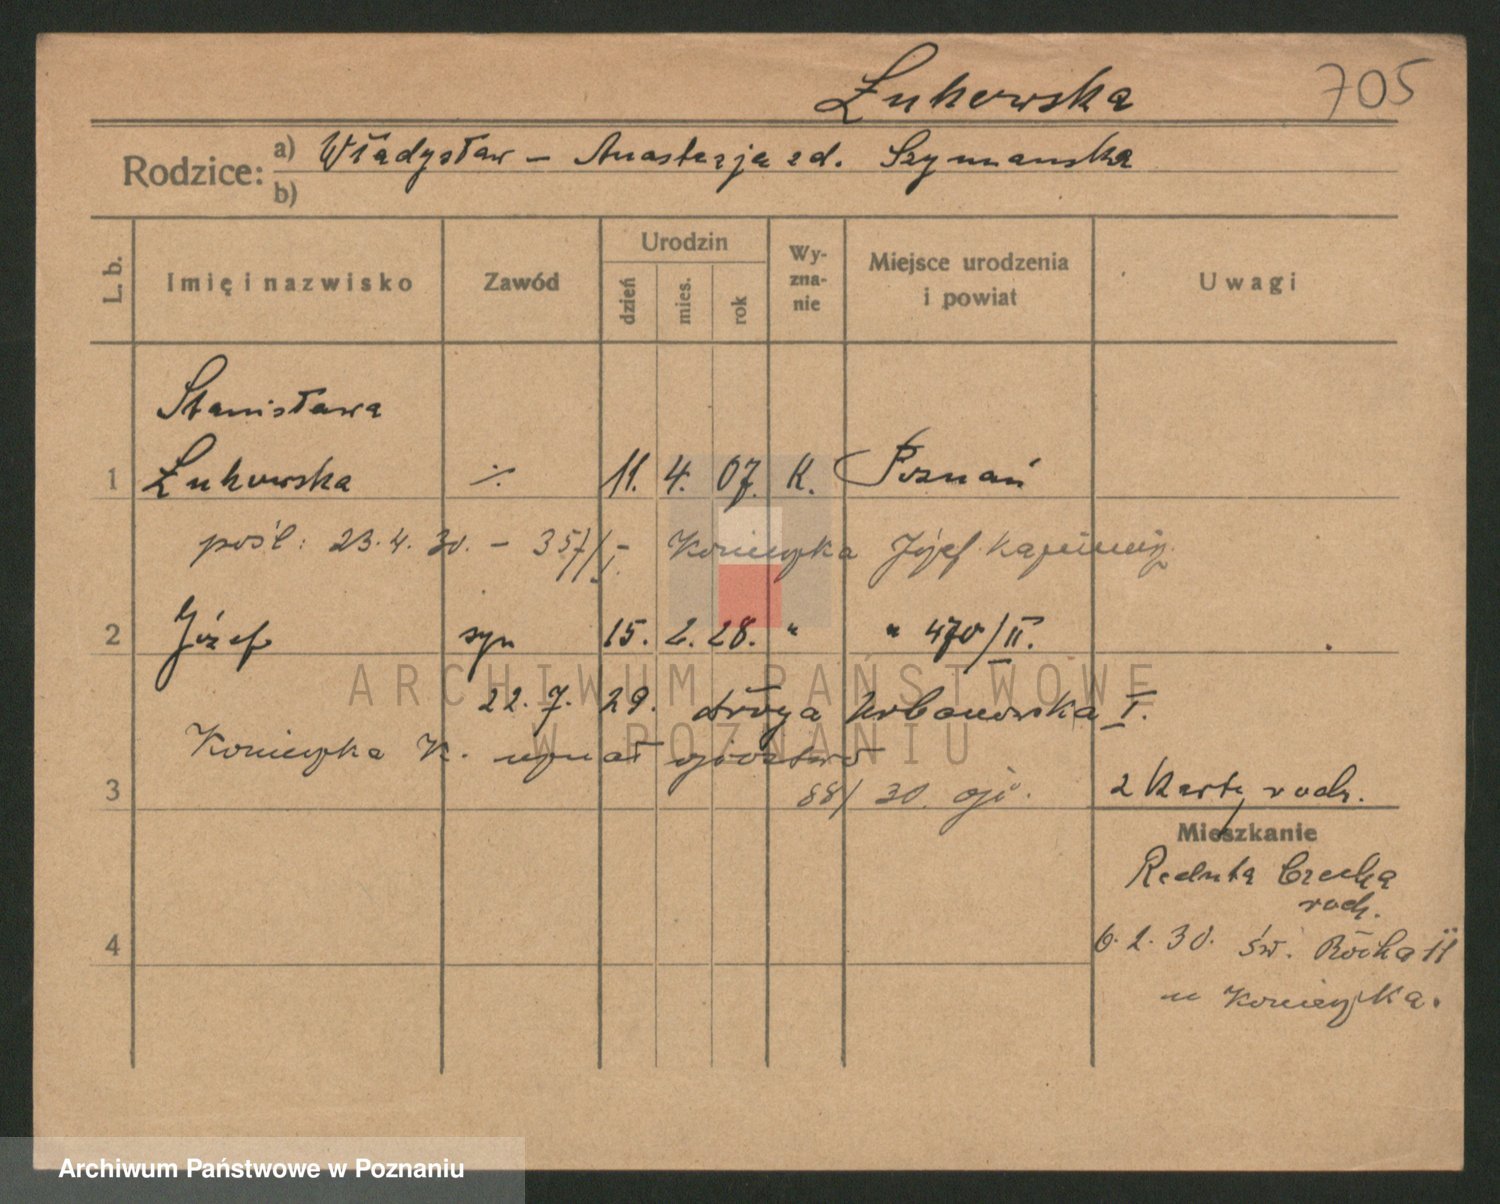 Łukowska 705
Rodzice: a) Władysław – Anastazja zd. Szymańska
b)
L. b. Imię i nazwisko Zawód Urodzin dzień mies. rok Wyznanie Miejsce urodzenia i powiat Uwagi
Stanisława
1 Łukowska ·/. 11. 4. 07. K. Poznań
pośl: 23.4.30. – 357/I – Konieczka Józef Kazimierz
2 Józef syn 15. 2. 28. " " 470/II.
22. 7. 29. droga Urbanowska I.
Konieczka K. uznał ojcostwo
3 88/30. ojc. 2 Karty rodz.
Mieszkanie
Reduta Czeska
rodz.
6.2.30. św. Rocha 11
4
u Konieczka.
ARCHIWUM PAŃSTWOWE
W POZNANIU
Archiwum Państwowe w Poznaniu